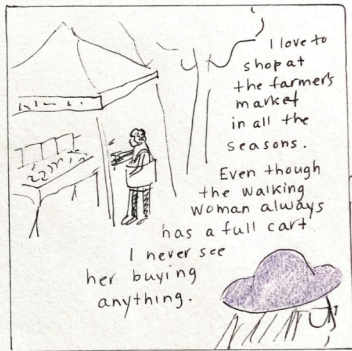 I love to
shop at
the farmer's
market
in all the
seasons.
Even though
the walking
woman always
has a full cart
I never see
her buying
anything.